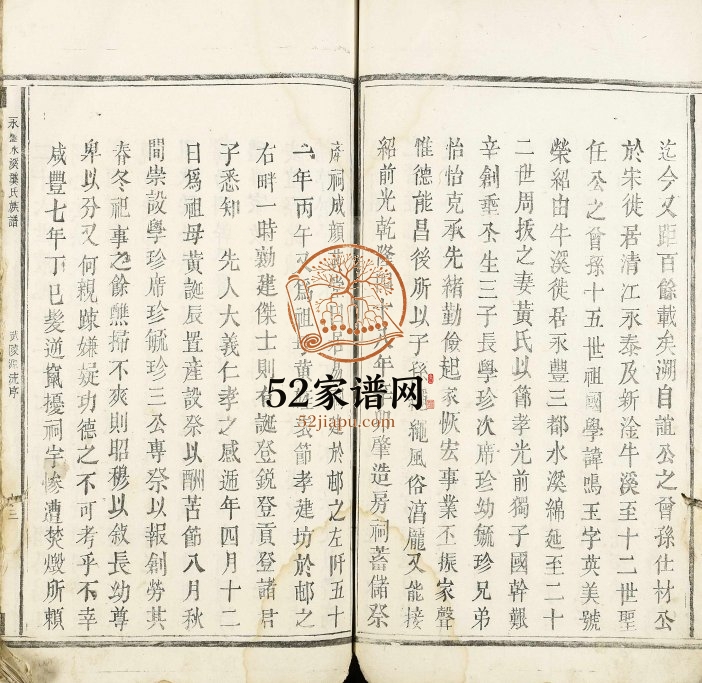 迄今又距百餘載矣溯自誼公之曾孫仕材公
於宋徙居清江永泰及新淦牛溪至十二世聖
任公之曾孫十五世祖國學諱鳴玉字英美號
榮紹由牛溪徙居永豐三都水溪綿延至二十
二世周拔之妻黃氏以節孝光前獨子國幹艱
辛創垂丕生三子長學珍次席珍幼毓珍兄弟
怡怡克承先緒勤儉起家恢宏事業丕振家聲
惟德能昌後所以子 繩風俗湻龐又能接
紹前光乾隆 十 年 肇造房祠蓄儲祭
產祠成顏 建於邨之左阡五十
一年丙午 為祖 黃 節孝建坊於邨之
右畔一時勷建傑士則有誕登銳登貢登諸君
子悉知 先人大義仁孝之感遞年四月十二
日為祖母黃誕辰置産設祭以酬苦節八月秋
間崇設學珍席珍毓珍三公專祭以報創勞其
春冬祀事之餘醮掃不爽則昭穆以敘長幼尊
卑以分又何親踈嫌疑功德之不可考乎不幸
咸豐七年丁巳髮逆竄擾祠宇慘遭焚燬所賴
永豐水溪龔氏族譜
武陵 序
三
52家谱网
52jiapu.com